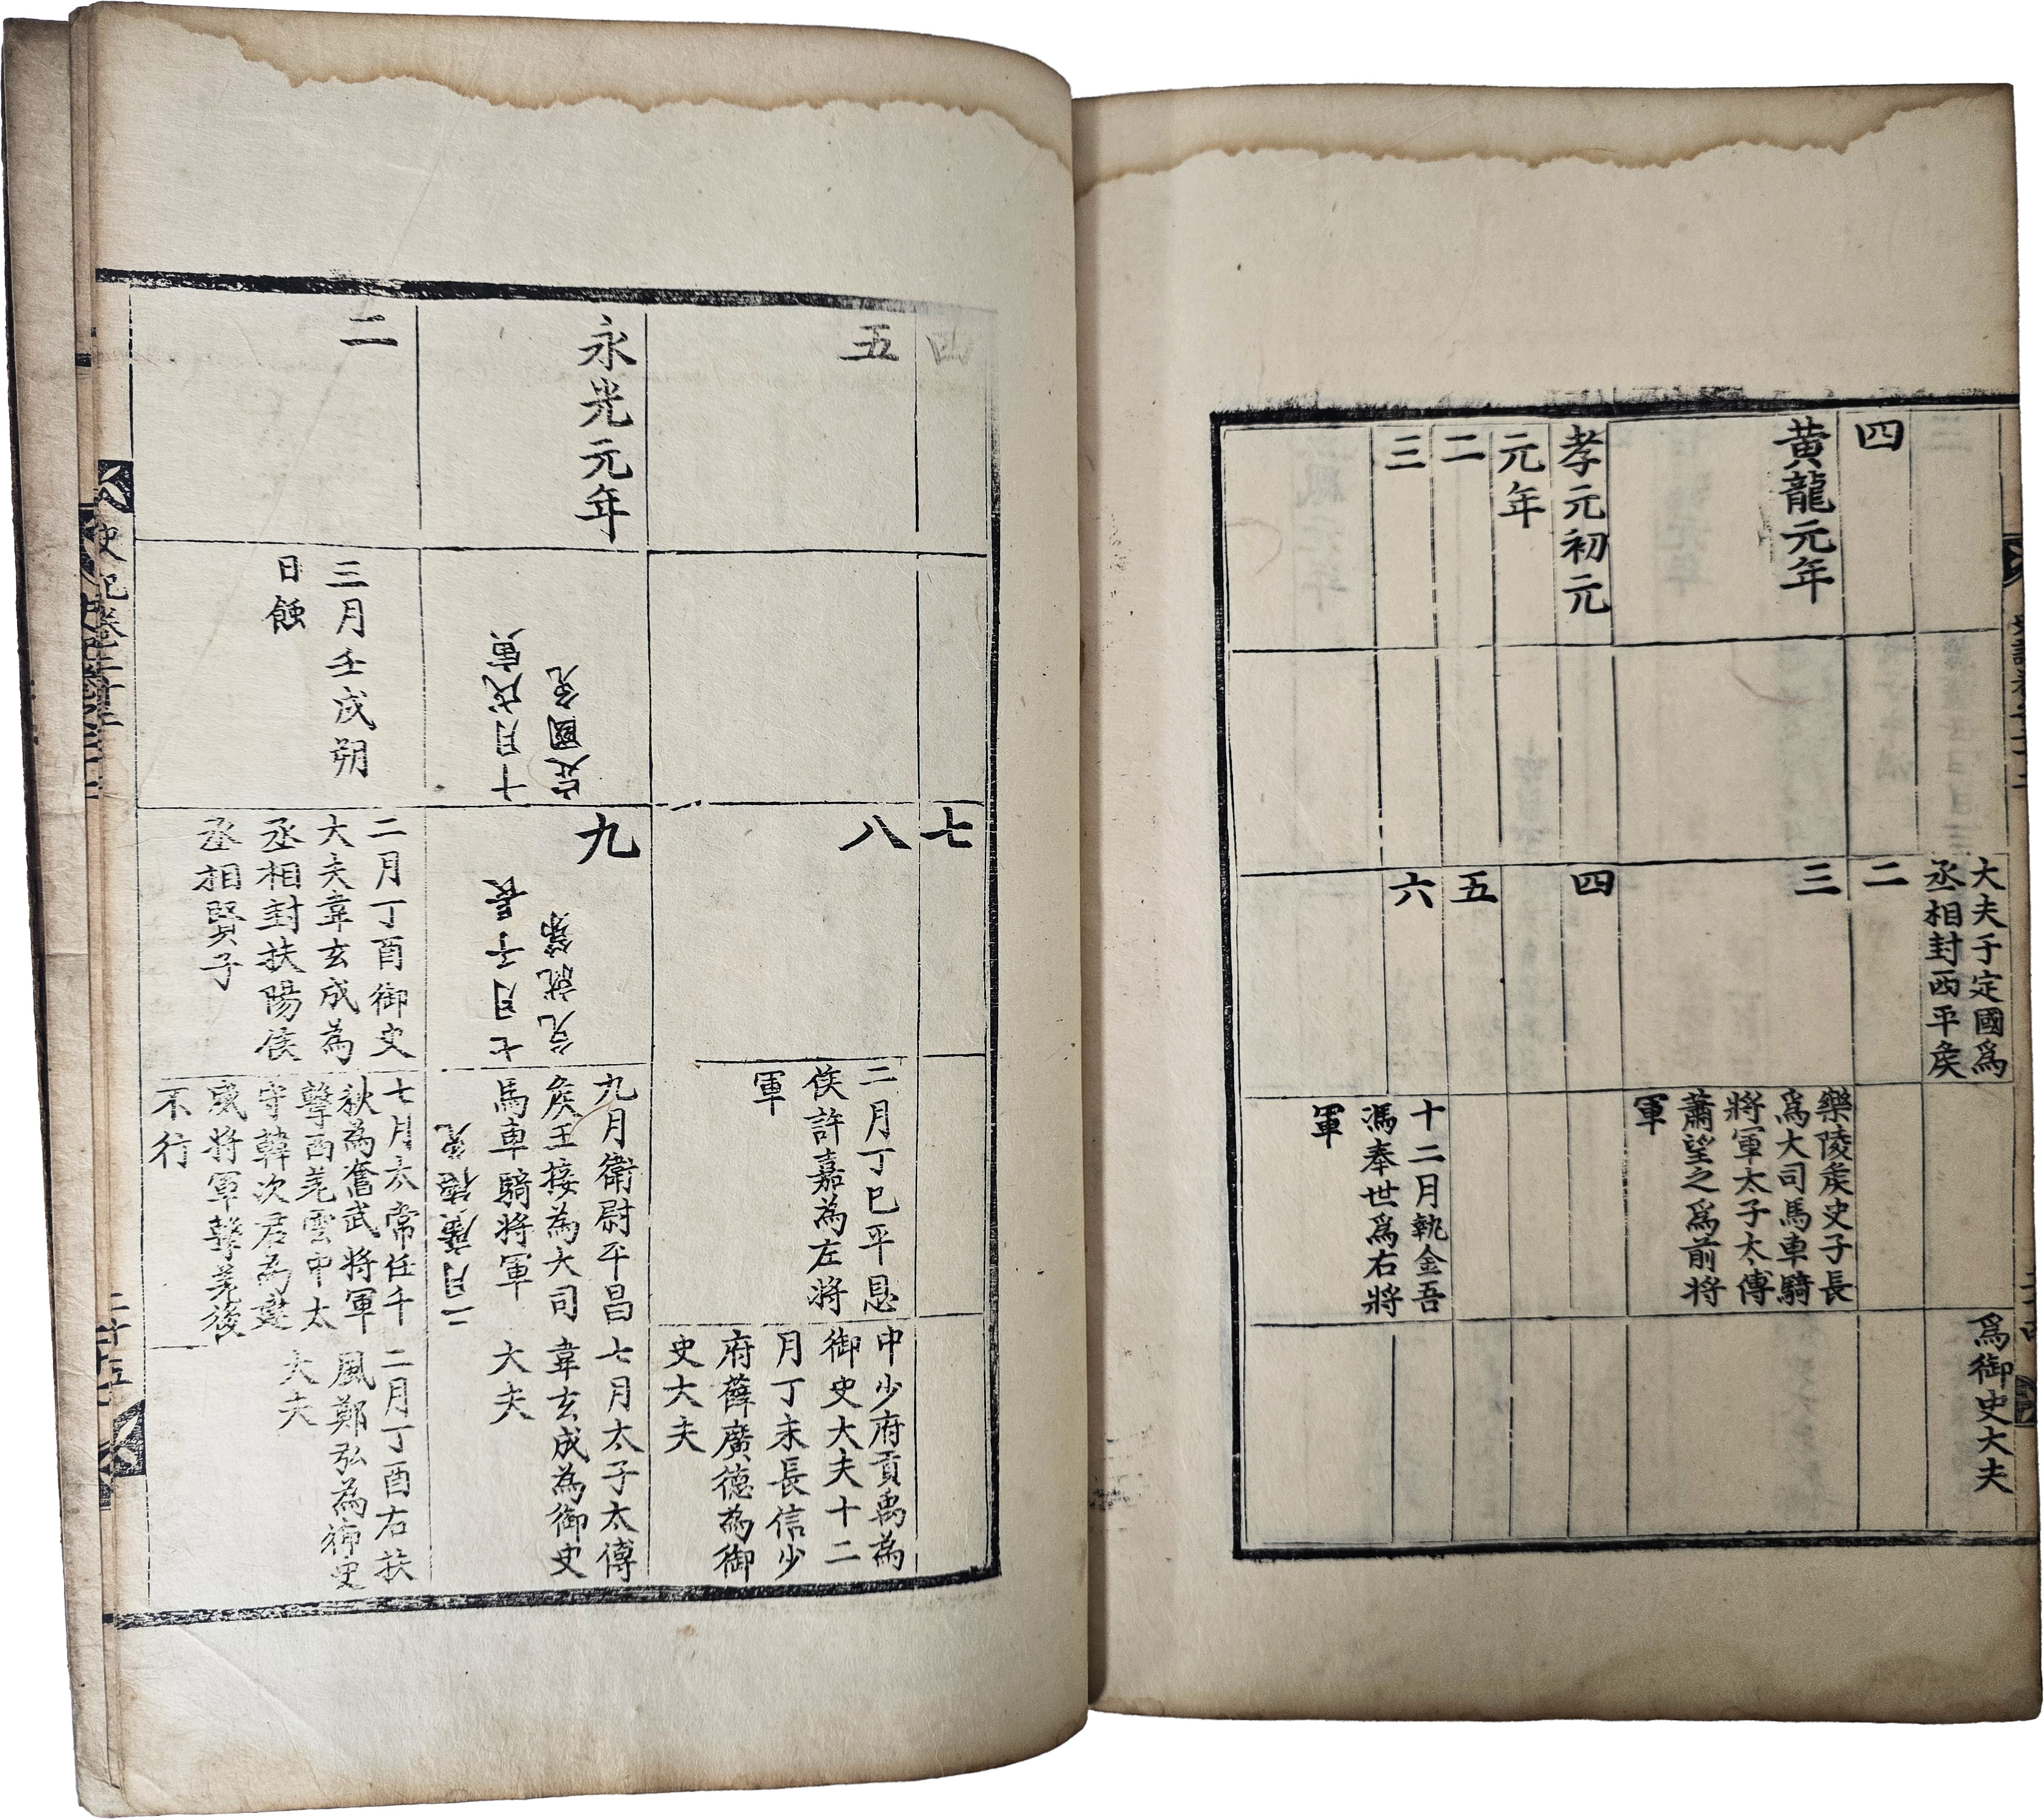 大夫于定國爲
丞相封西平矦
爲御史大夫
四
二
黃龍元年
三
樂陵矦史子長
爲大司馬車騎
將軍太子太傅
蕭望之爲前將
軍
孝元初元
元年
四
二
五
三
六
十二月執金吾
馮奉世爲右將
軍
四
七
五
八
二月丁巳平恩
侯許嘉為左將
軍
中少府貢禹為
御史大夫十二
月丁未長信少
府薛廣德為御
史大夫
永光元年
定國免
十月戊寅
九
免就第
七月子長
九月衛尉平昌
矦王接為大司
馬車騎將軍
二月廣德免
七月太子太傅
韋玄成為御史
大夫
二
三月壬戌朔
日蝕
二月丁酉御史
大夫韋玄成為
丞相封扶陽侯
丞相賢子
七月太常任千
秋為奮武將軍
擊西羌雲中太
守韓次君為建
威將軍擊羌後
不行
二月丁酉右扶
風鄭弘為御史
大夫
史記卷二十二
二十五